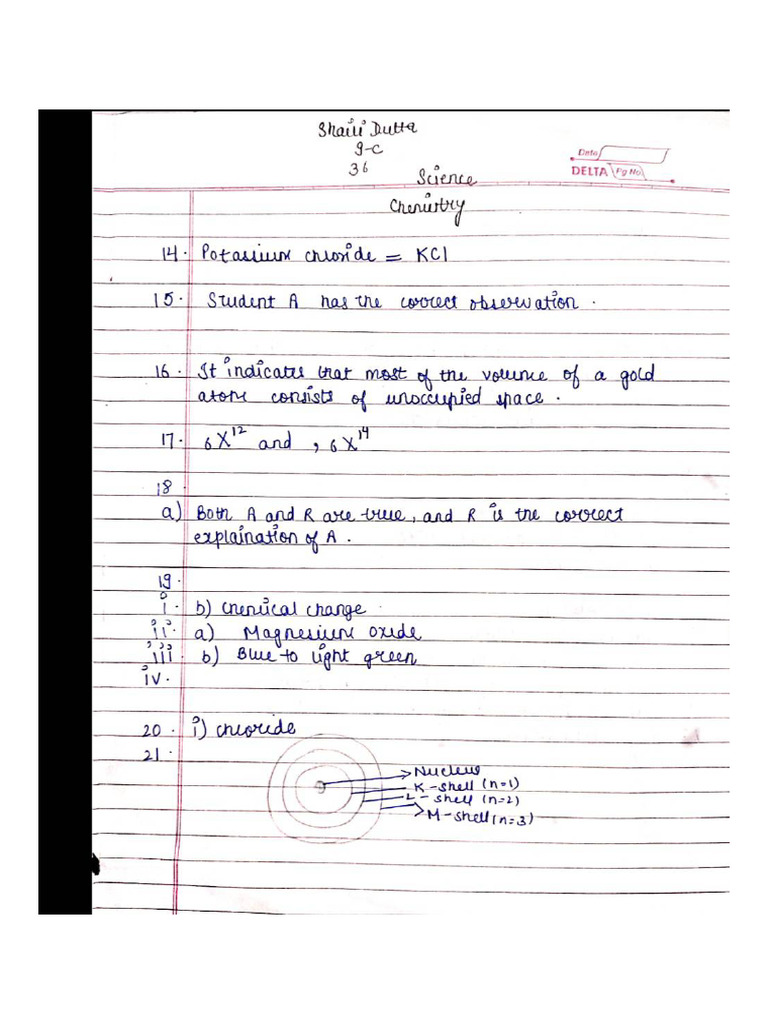 Shaili Dutta
9-C
36
Date
DELTA Pg No.
Science
Chemistry
14. Potassium chloride = KCl
15. Student A has the correct observation.
16. It indicates that most of the volume of a gold
atom consists of unoccupied space.
17. ₆X¹² and , ₆X¹⁴
18.
a) Both A and R are true, and R is the correct
explaination of A.
19.
i. b) Chemical change
ii. a) Magnesium oxide
iii. b) Blue to light green
iv.
20. i) chloride
21.
Nucleus
K-shell (n=1)
L-shell (n=2)
M-shell (n=3)